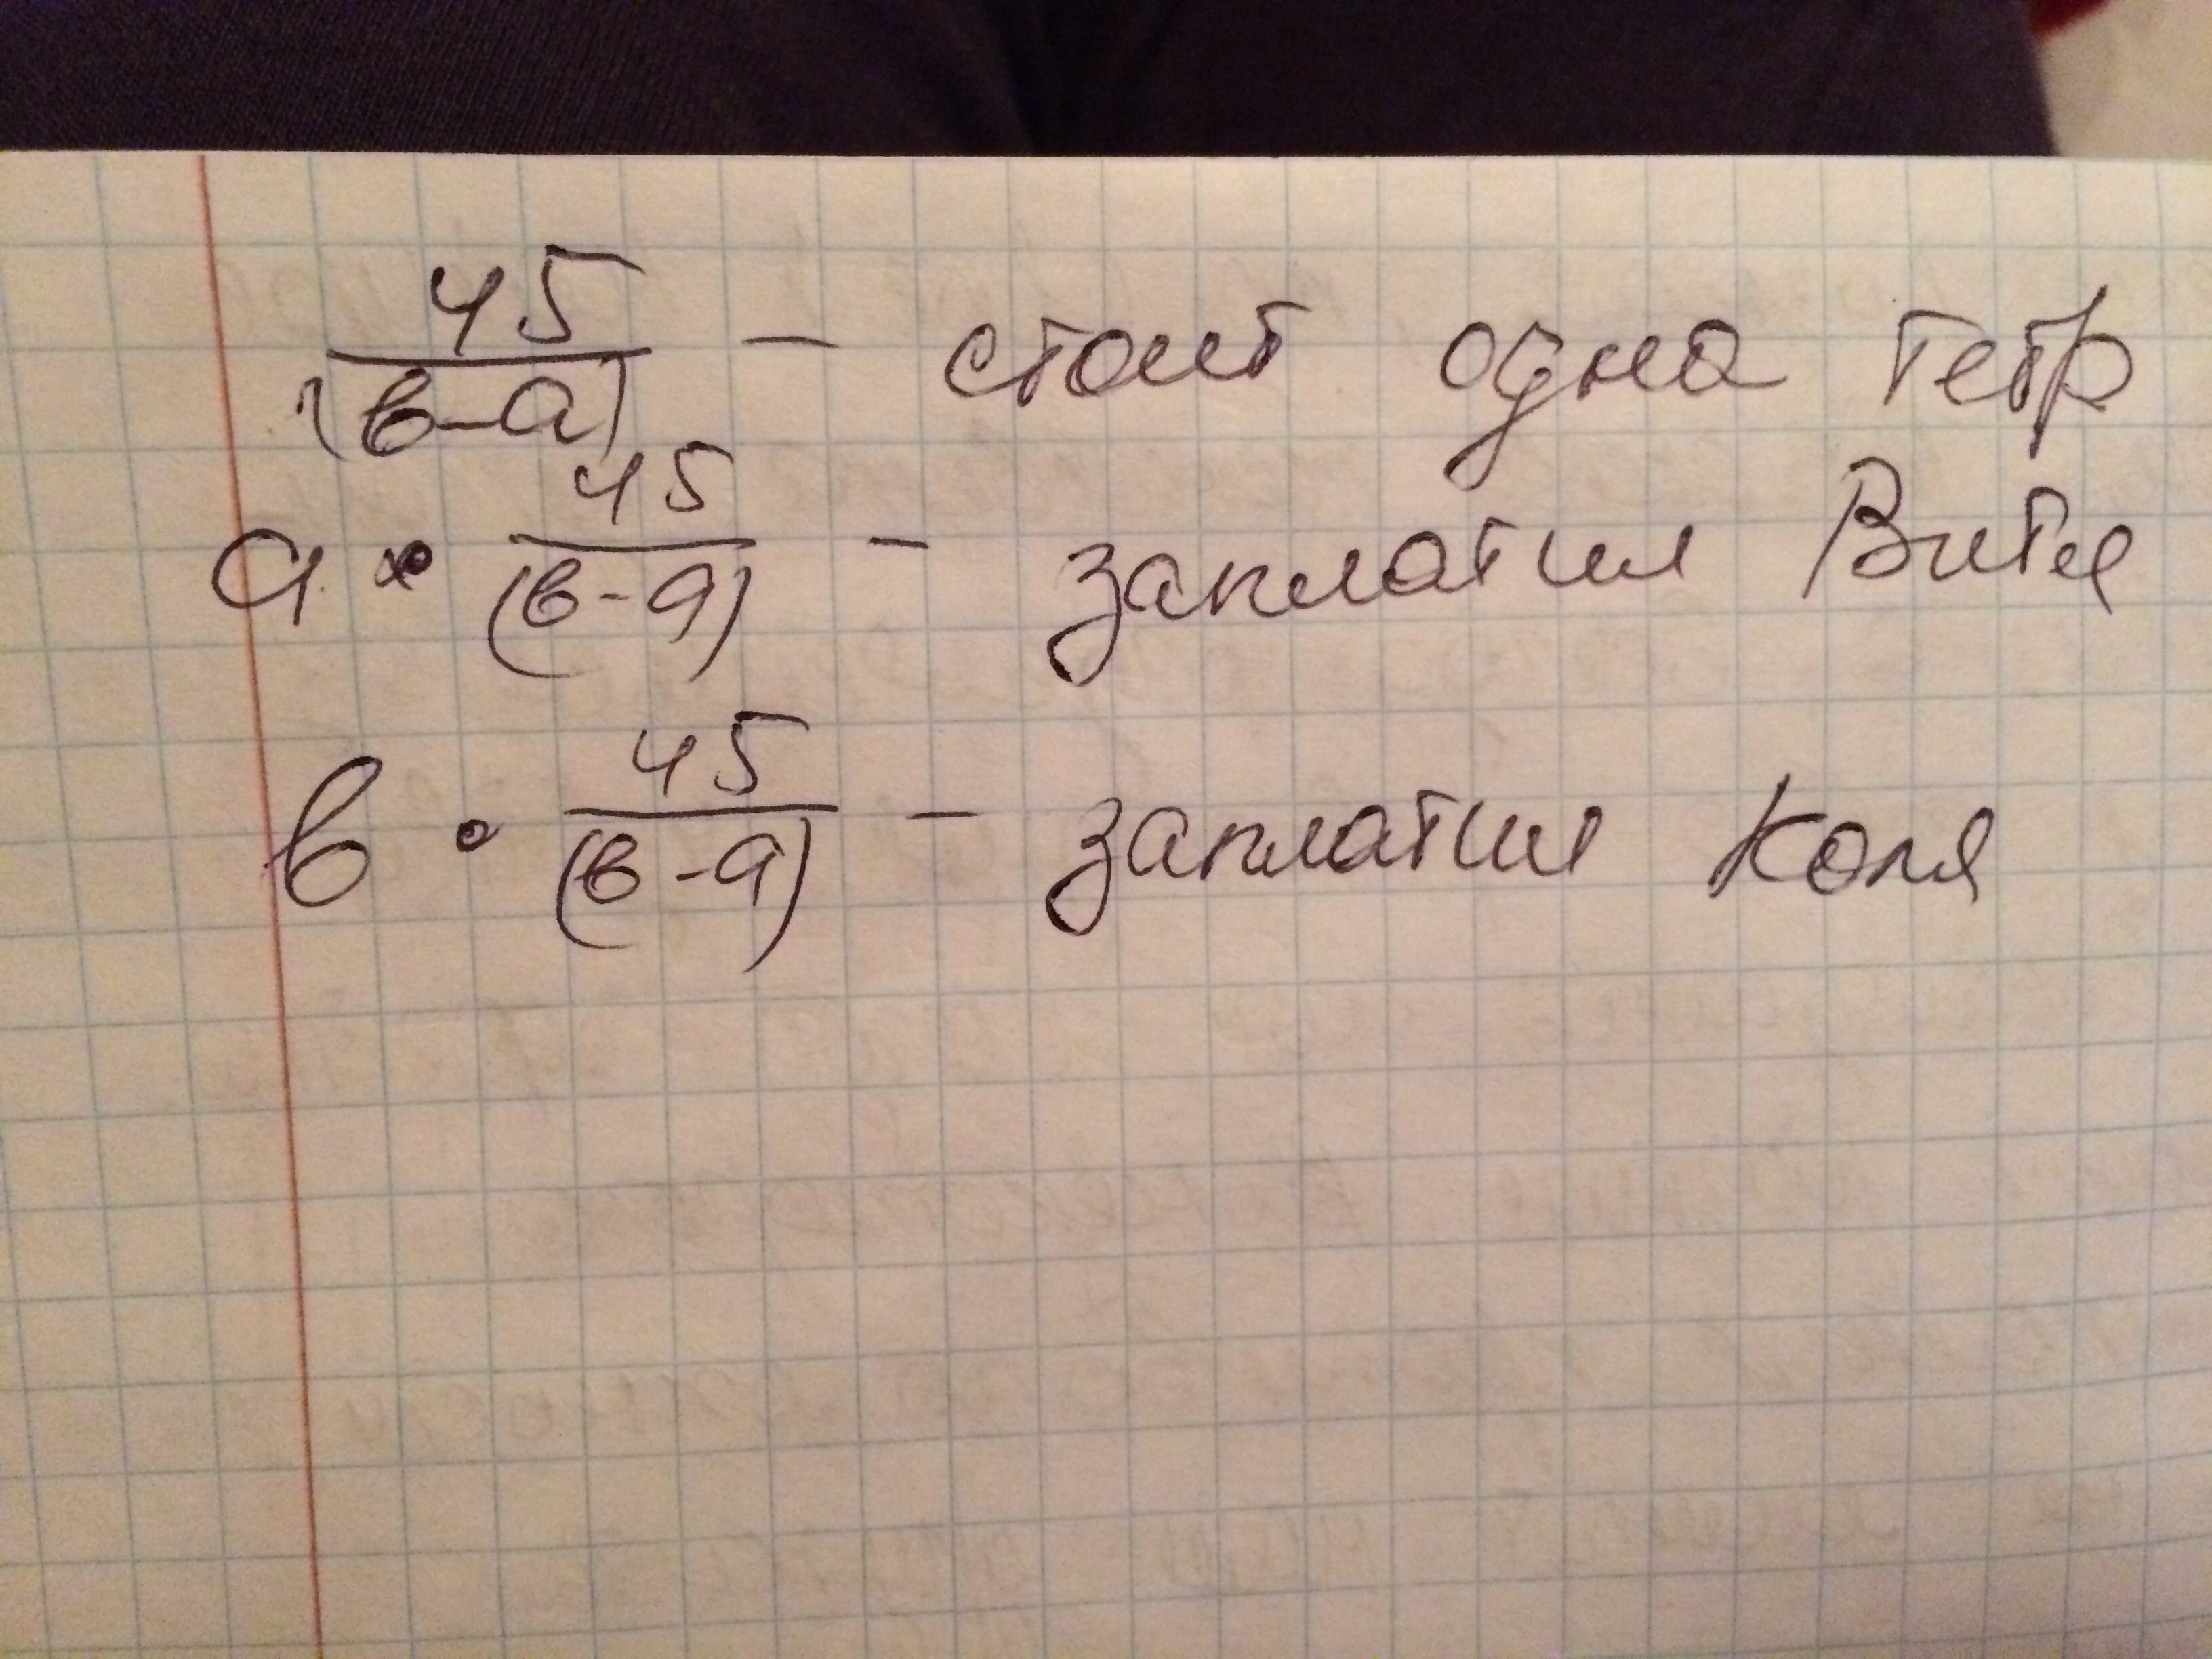 45/(в-а) - стоит одна тетр
а • 45/(в-а) - заплатил Витя
в • 45/(в-а) - заплатил Коля